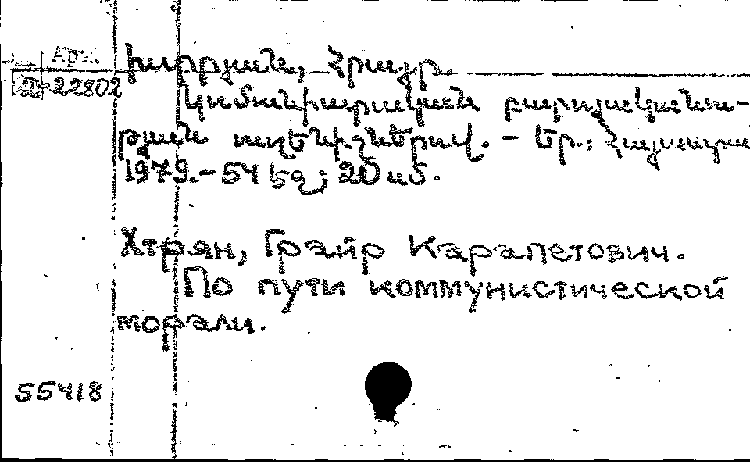 Арм.
2-22802
Խտրյան, Հրայր.
Կոմունիստական բարոյականու-
թյան ուղենիշներով. - Եր.: Հայաստան
1979.- 54 եզ; 20 սմ.
Хтрян, Грайр Карапетович.
По пути коммунистической
морали.
55418